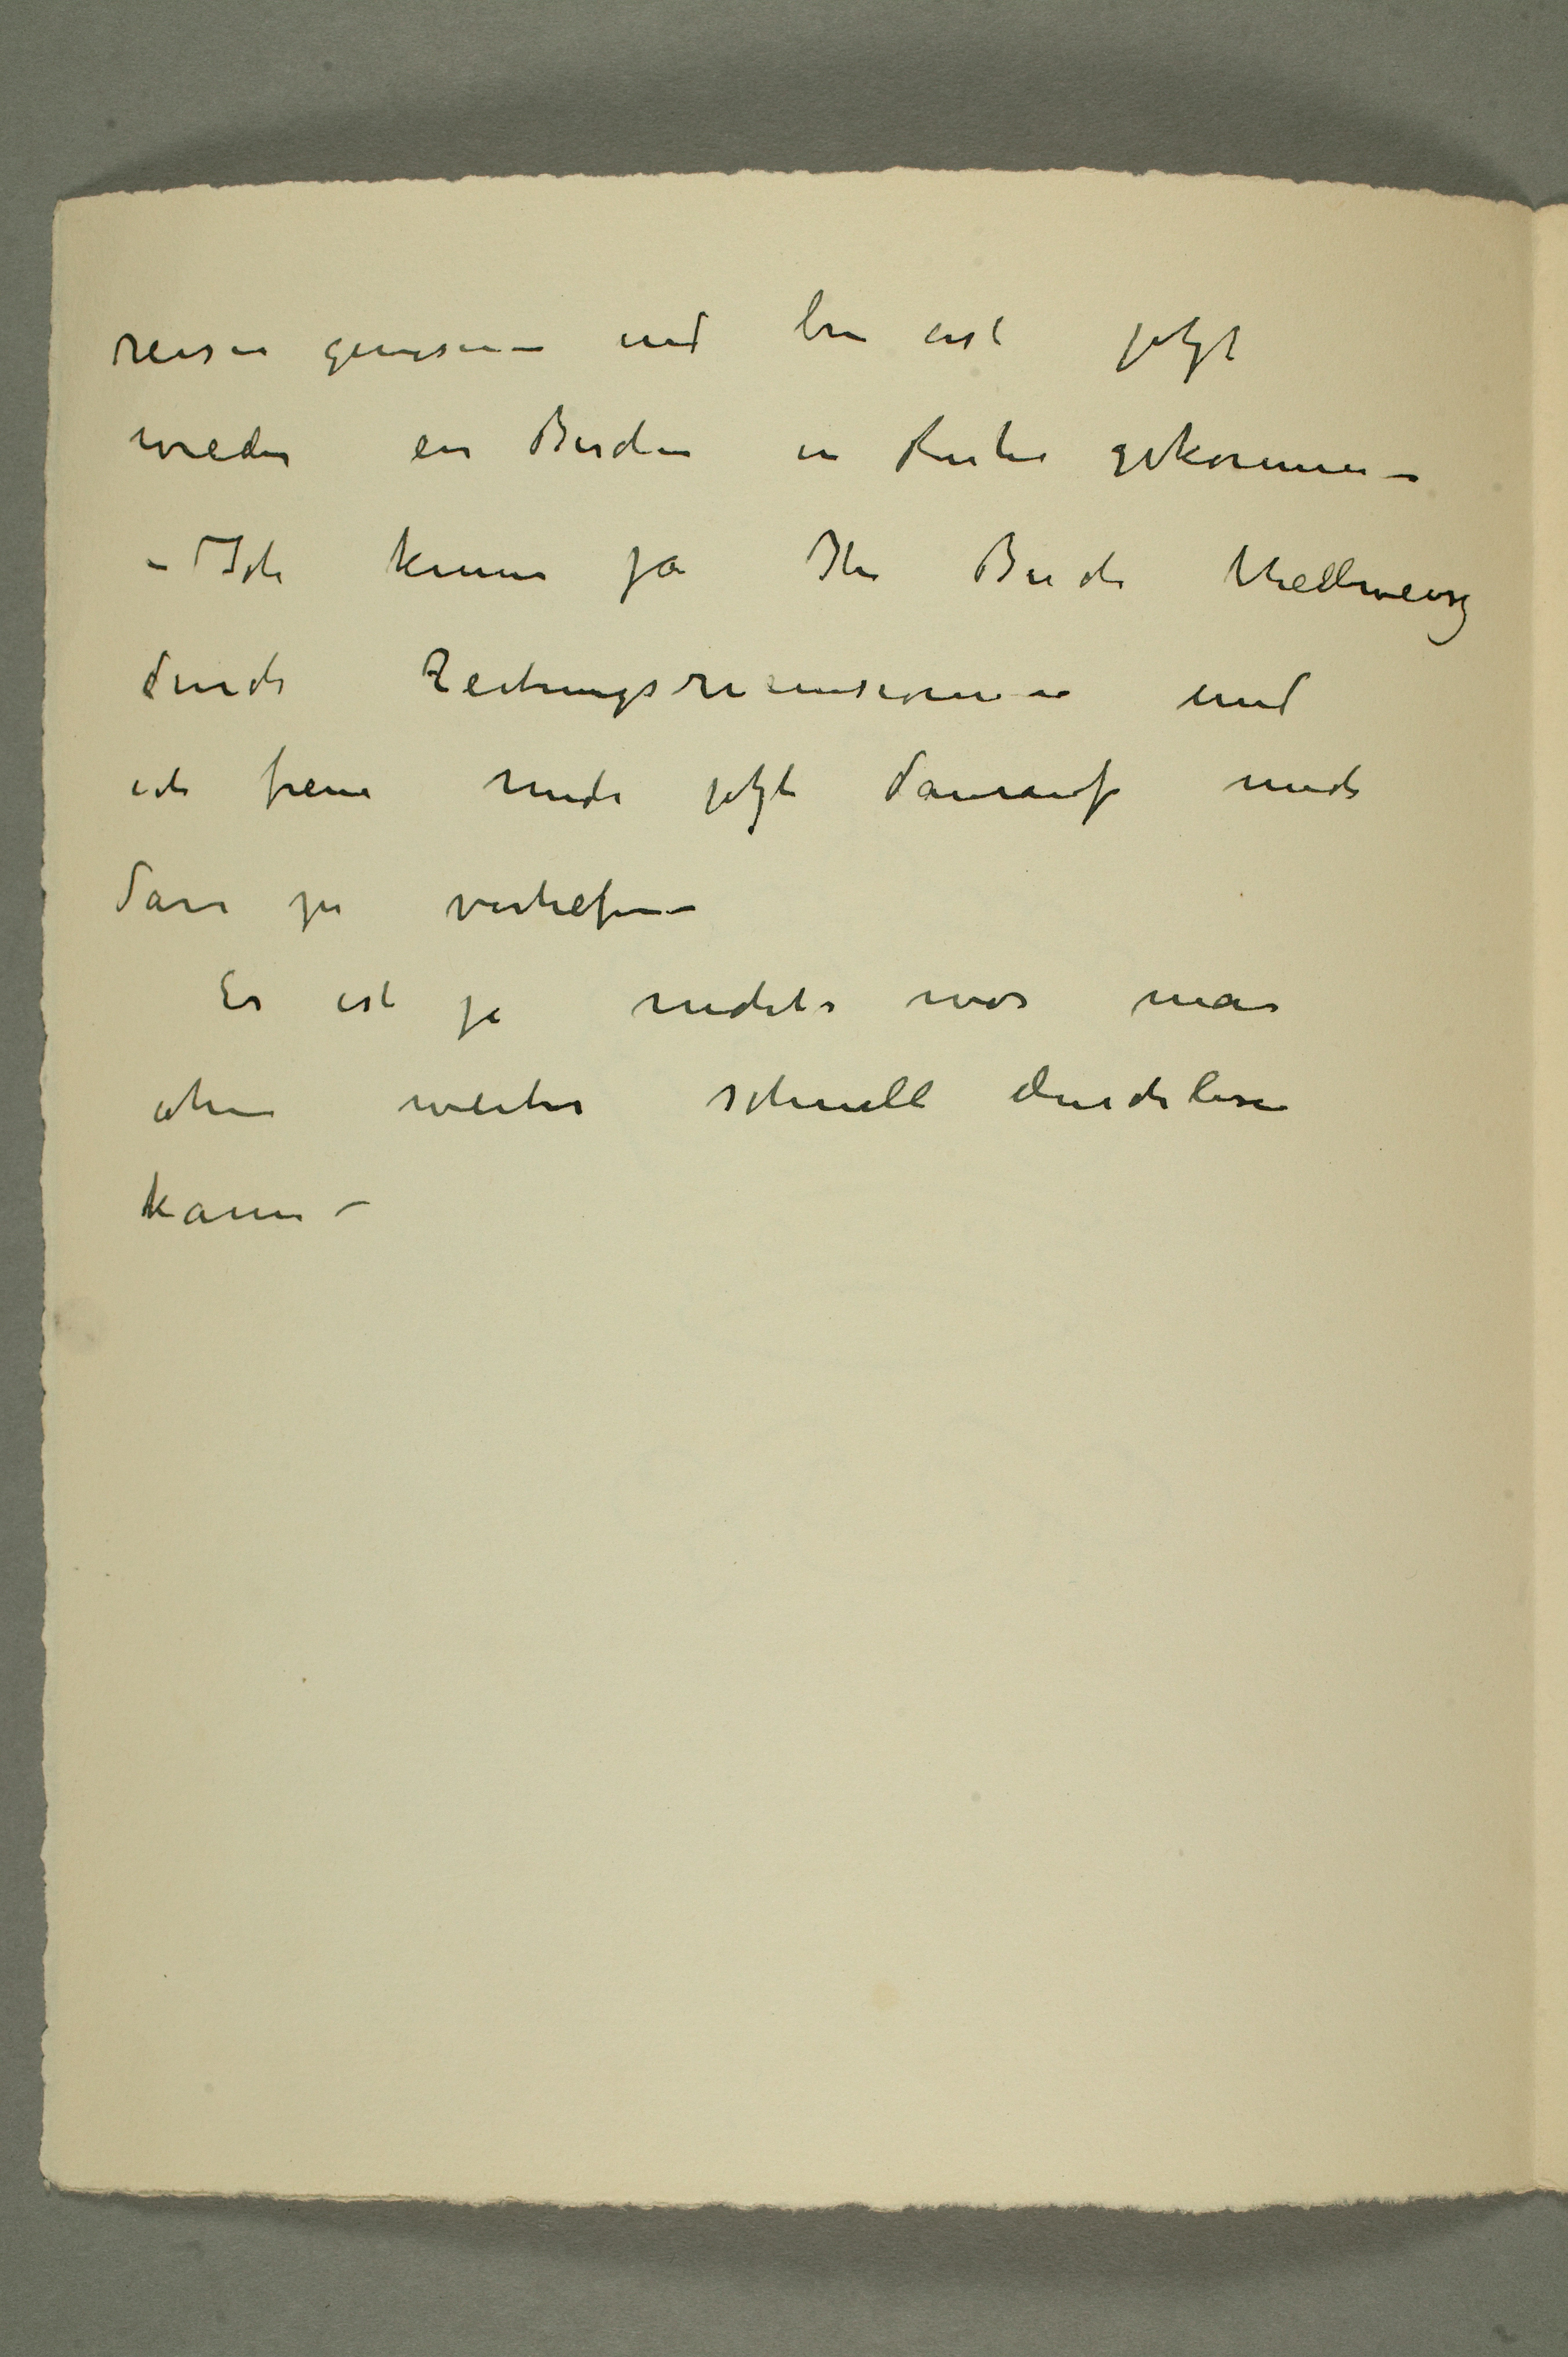 reisen gewesen – und bin erst jetzt
wieder ein Bischen in Ruhe gekommen –
– Ich kenne ja Ihr Buch theilweise
durch Zeitungsrecensionen – und
ich freue mich jetzt darauf mich
darin zu vertiefen –
Es ist ja nichts was man
ohne weiter schnell durchlesen
kann –